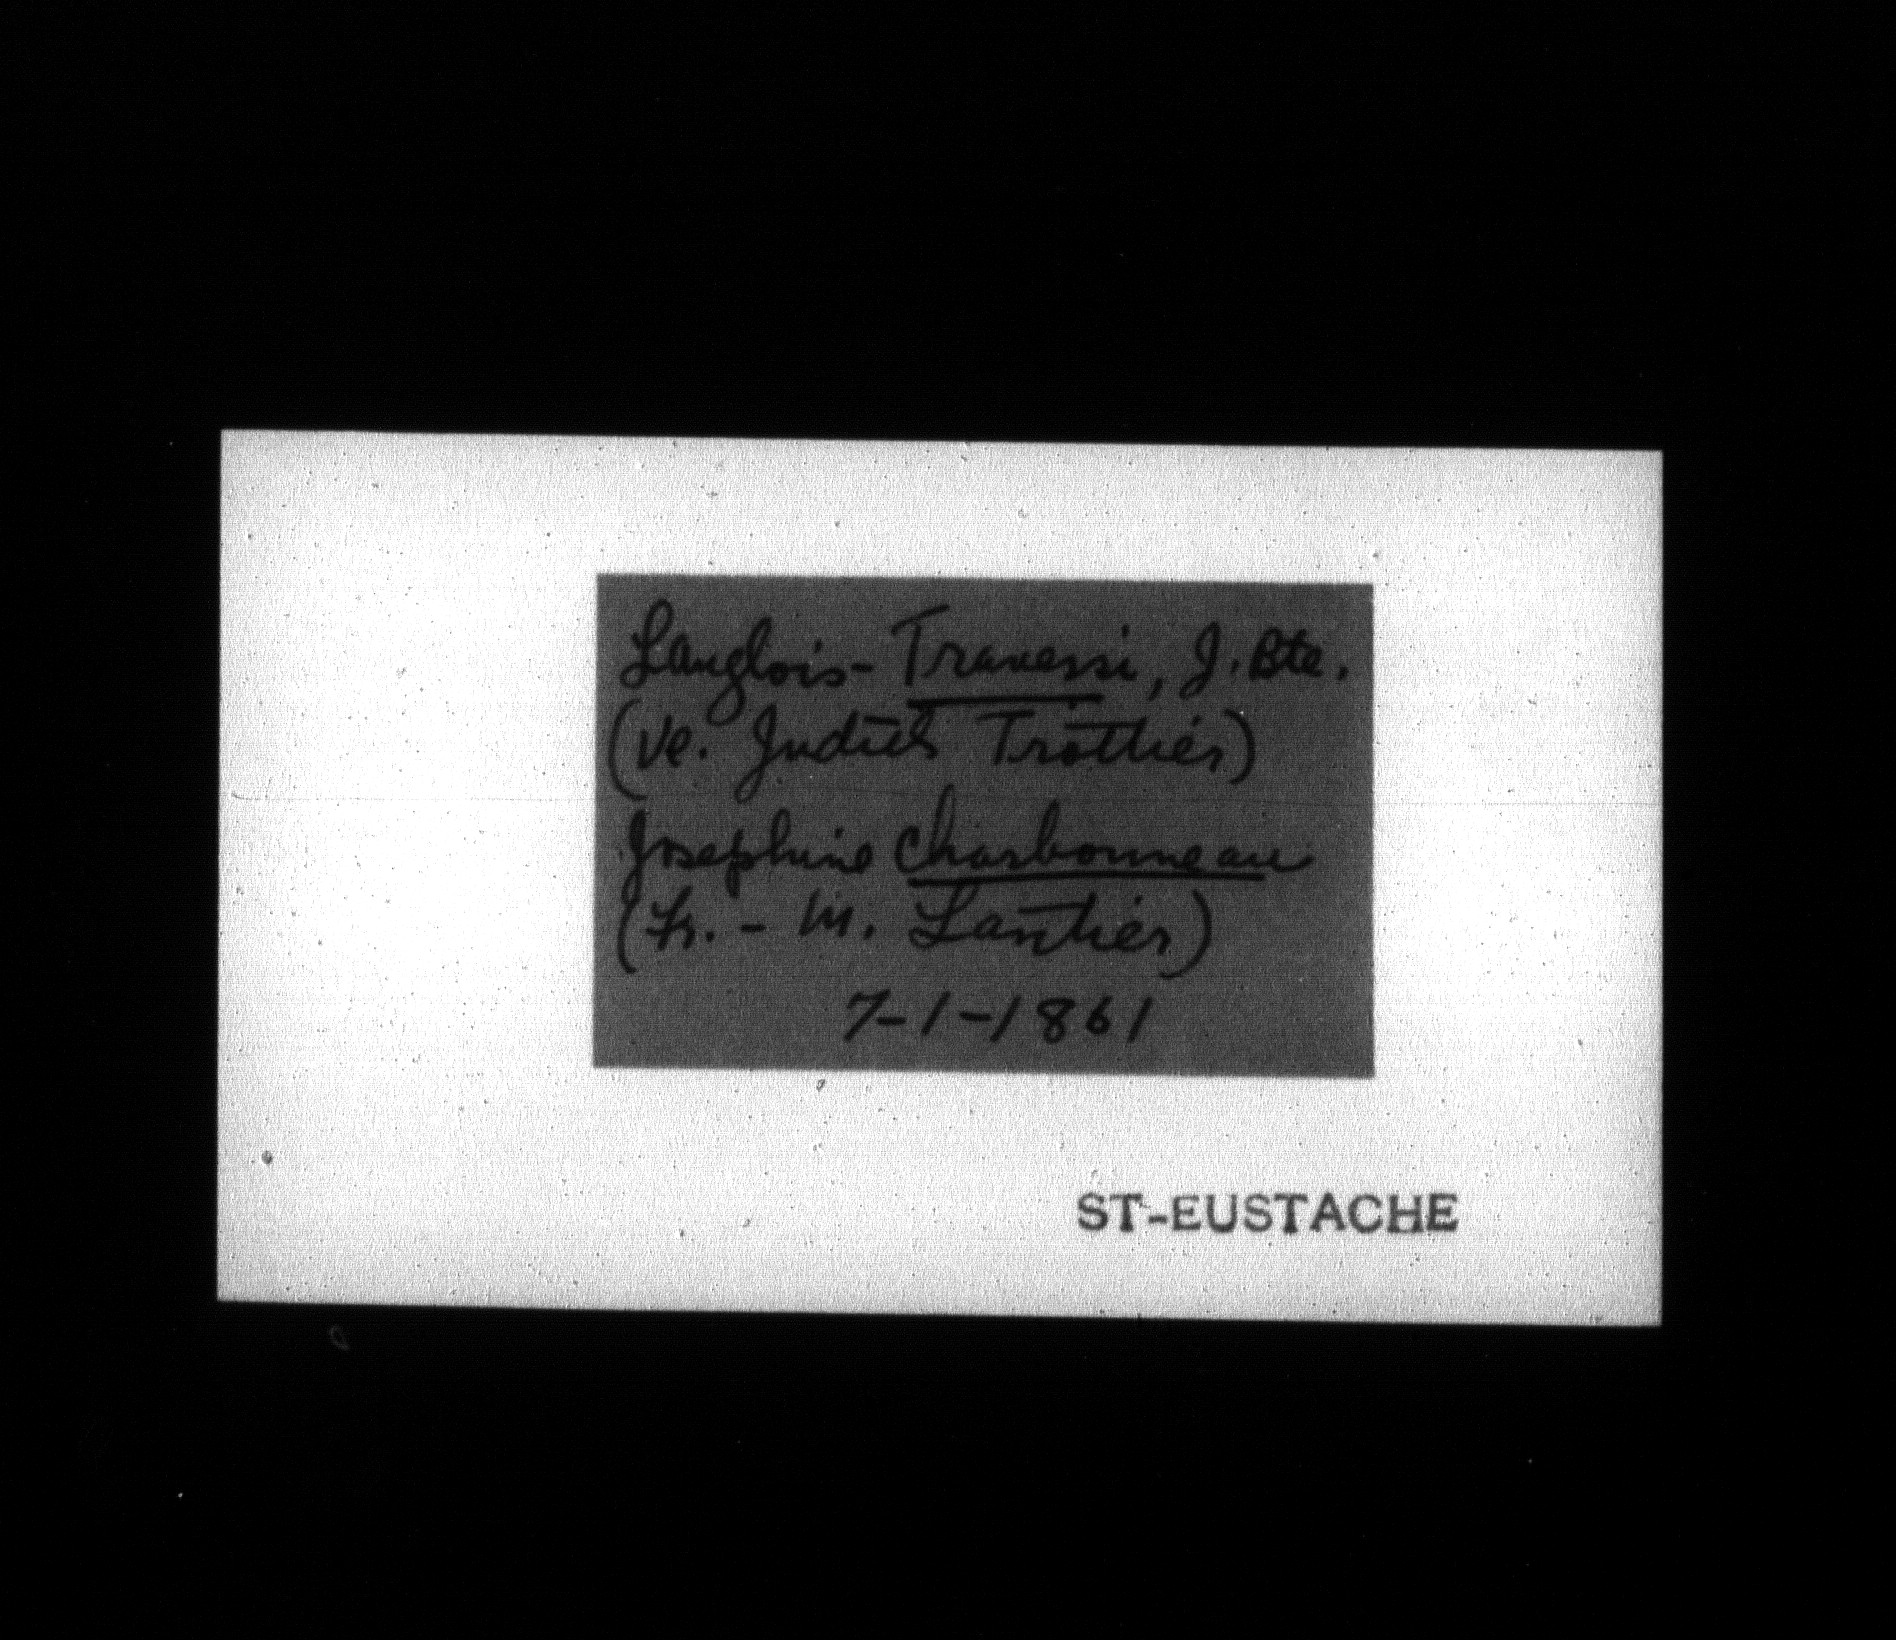 Langlois-Traversi, J. Bte.
(Ve. Judith Trottier)
Josephine Charbonneau
(Fr. - M. Lantier)
7-1-1861
ST-EUSTACHE